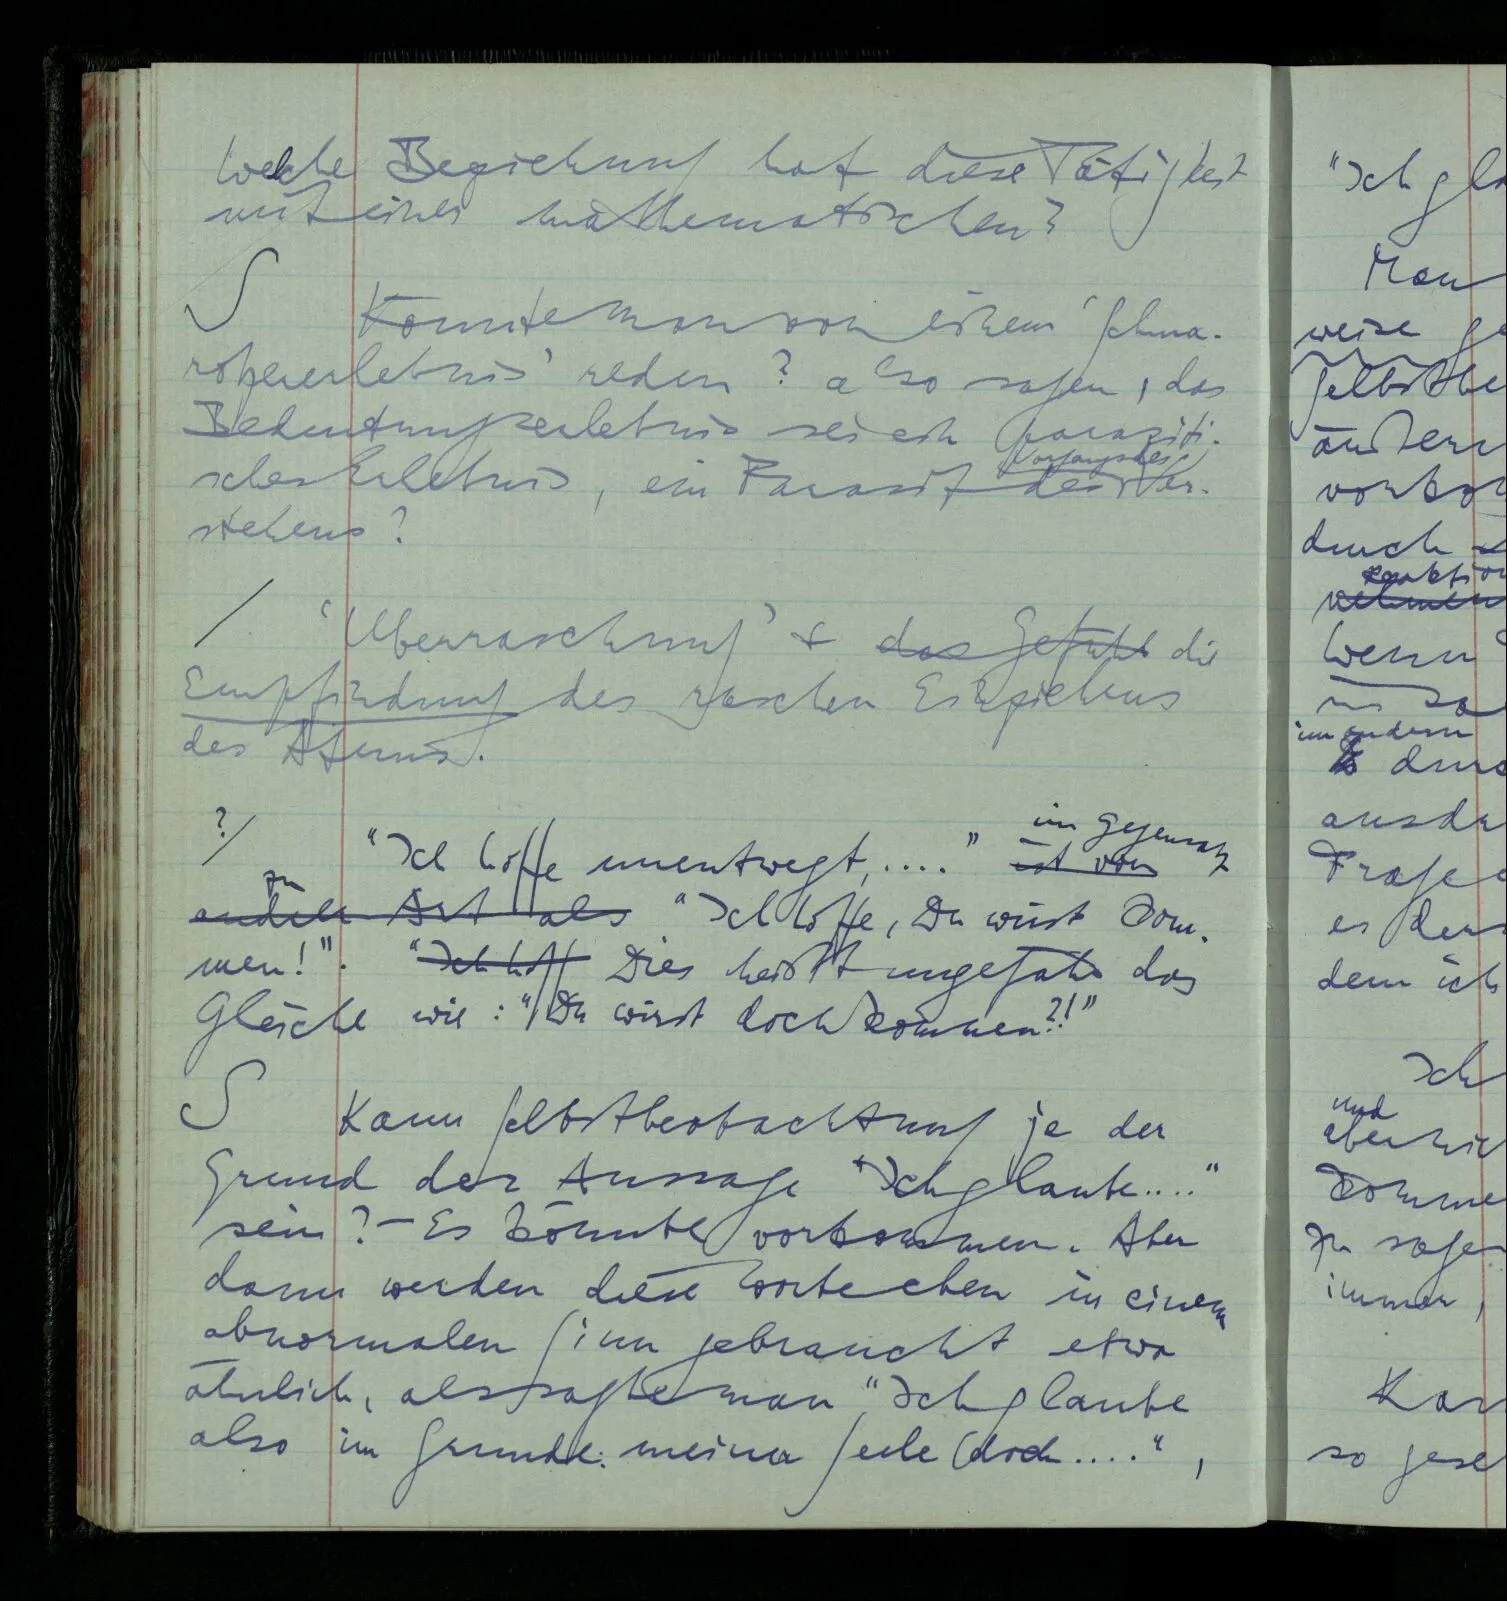 Welche Beziehung hat diese Tätigkeit
mit einer mathematischen?
S Könnte man von einem 'Schma-
rotzererlebnis' reden? also sagen, das
Bedeutungserlebnis sei ein parasiti-
sches Erlebnis, ein Parasit des Ver-
stehens?
/ 'Überraschung' & das Gefühl die
Empfindung des raschen Einziehens
des Atems.
im Gegensatz
?/ "Ich hoffe unentwegt, ...." ist von
zu
andere Art als "Ich hoffe, Du wirst kom-
men!". "Ich hoff Dies heißt ungefähr das
Gleiche wie: "Du wirst doch kommen?!"
S Kann Selbstbeobachtung je der
Grund der Aussage "Ich glaube...."
sein? – Es könnte vorkommen. Aber
dann werden diese Worte eben in einem
abnormalen Sinn gebraucht etwa
ähnlich, als sagte man "Ich glaube
also im Grunde meiner Seele doch....",
"Ich
Man
weise
durch
Wenn
im andern
Frage
dem ich
Ich
und
zu
immer,
so